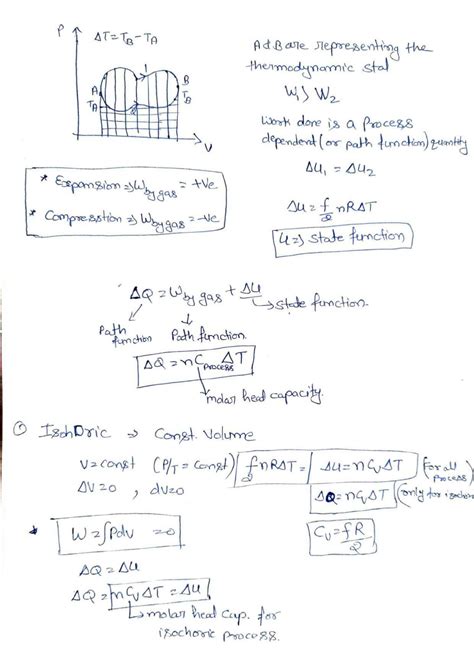 P ΔT = T_B - T_A
1
A B
T_A T_B
2
V
A & B are representing the
thermodynamic stal
W₁ > W₂
Work done is a process
dependent (or path function) quantity
ΔU₁ = ΔU₂
ΔU = f/2 nRΔT
U ⇒ State function
* Expansion ⇒ W by gas = +ve
* Compression ⇒ W by gas = -ve
ΔQ = W by gas + ΔU
→ State function.
Path function
Path function.
ΔQ = nC process ΔT
molar heat capacity.
① Isochoric ⇒ Const. Volume
V = const (P/T = Const)
ΔV = 0 , dv = 0
f/2 nRΔT = ΔU = nC_vΔT (For all process)
ΔQ = nC_vΔT (only for isochoric
C_v = fR/2
* W = ∫Pdv = 0
ΔQ = ΔU
ΔQ = nC_vΔT = ΔU
→ molar heat cap. for
isochoric process.